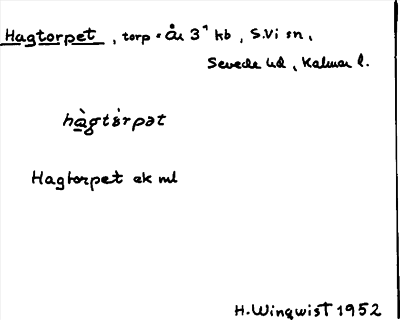 Hagtorpet, torp. Åu 3¹ kb, S.Vi sn,
Sevede hd, Kalmar l.
hàgtèrpət
Hagtorpet ek ml
H. Winqwist 1952